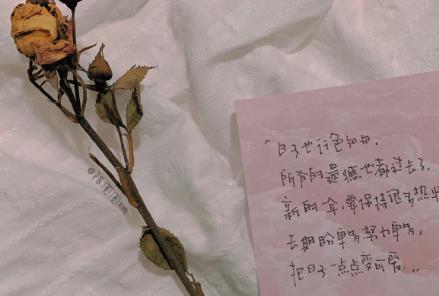 "日子也行色匆匆,
所有的遗憾也都过去了,
新的一年,要保持很多热
去期盼 努力
把日子一点点变可爱...